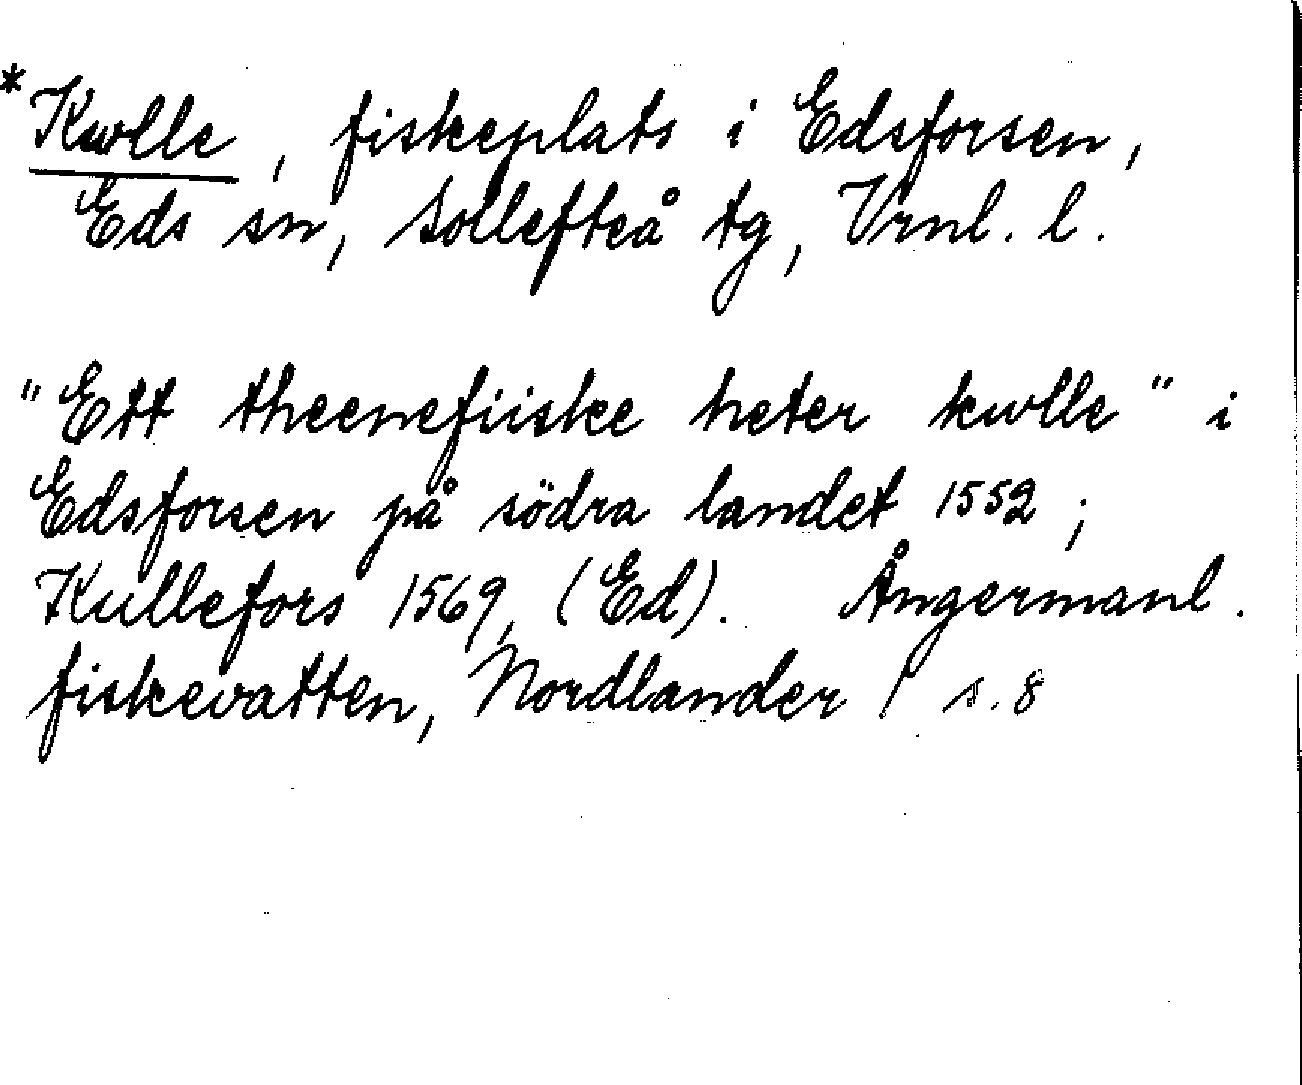 *Kwlle, fiskeplats i Edsforsen,
Eds sn, Sollefteå tg, Vrnl. l.
"Ett theenefiiske heter kwlle" i
Edsforsen på södra landet 1552;
Kullefors 1569, (Ed). Ångermanl.
fiskevatten, Nordlander / s. 8